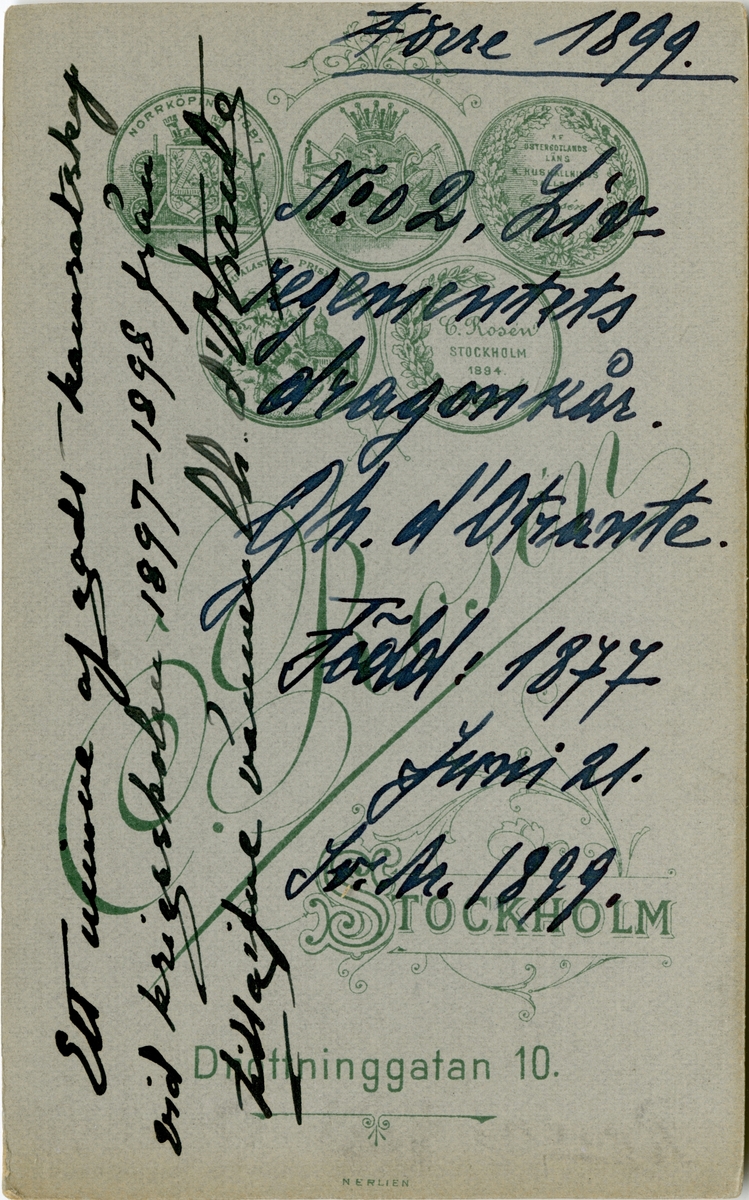 Förre 1899.
NORRKÖPING 1887
AF
ÖSTERGÖTLANDS
LÄNS
K. HUSHÅLLNINGS
C. Rosén
STOCKHOLM
1894.
No: 02, Liv-
regementets
dragonkår.
Gh. d'Otrante.
Född: 1877
Juni 21.
Sv. Ar. 1899.
Ett minne af godt kamratskap
vid krigsskolan 1897-1898 från
tillgifne vännen d'Otrante
C. Rosén
STOCKHOLM
Drottninggatan 10.
NERLIEN